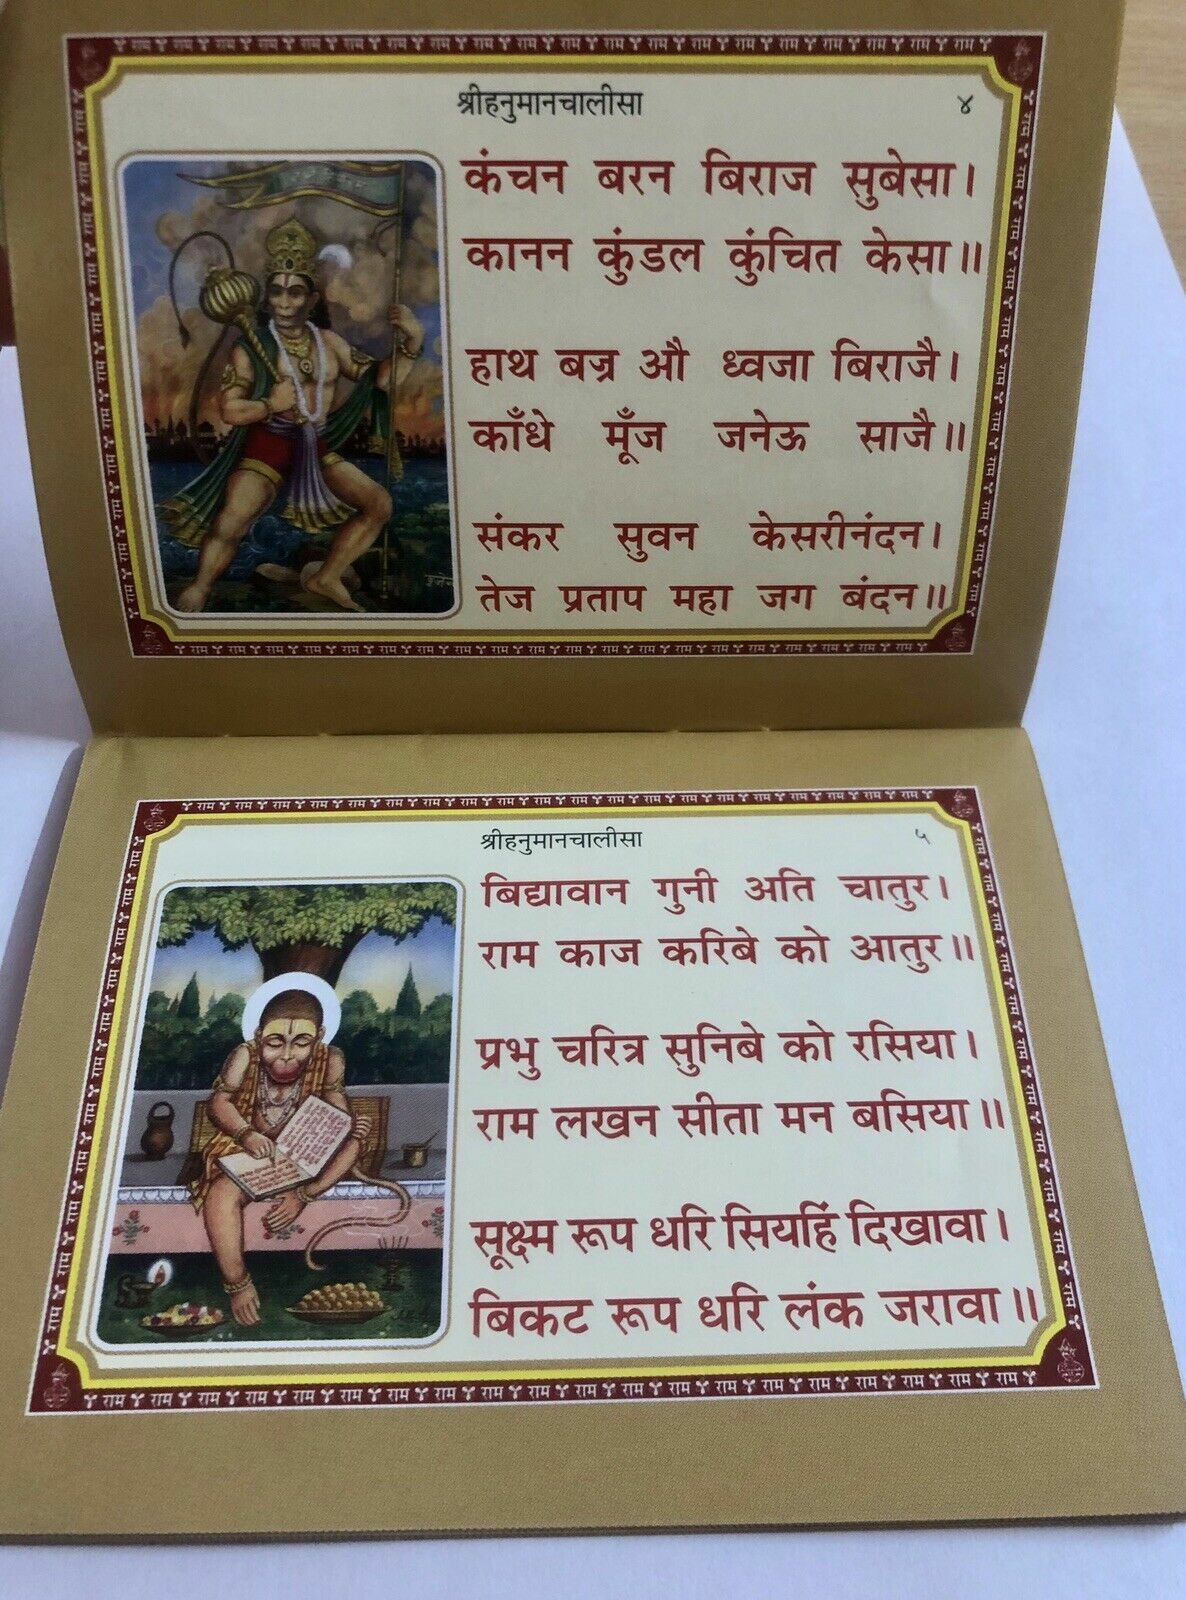 श्रीहनुमानचालीसा ४
कंचन बरन बिराज सुबेसा।
कानन कुंडल कुंचित केसा॥
हाथ बज्र औ ध्वजा बिराजै।
काँधे मूँज जनेऊ साजै॥
संकर सुवन केसरीनंदन।
तेज प्रताप महा जग बंदन॥
श्रीहनुमानचालीसा ५
बिद्यावान गुनी अति चातुर।
राम काज करिबे को आतुर॥
प्रभु चरित्र सुनिबे को रसिया।
राम लखन सीता मन बसिया॥
सूक्ष्म रूप धरि सियहिं दिखावा।
बिकट रूप धरि लंक जरावा॥